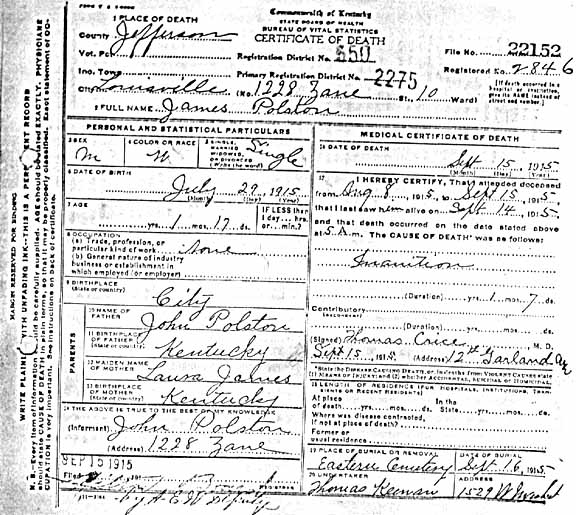 Commonwealth of Kentucky
STATE BOARD OF HEALTH
BUREAU OF VITAL STATISTICS
CERTIFICATE OF DEATH
1 PLACE OF DEATH
County Jefferson
Vot. Pct.
Registration District No. 550
File No. 22152
Inc. Town
Primary Registration District No. 2275
Registered No. 2846
City Louisville (No. 1228 Zane St., 10 Ward)
[If death occurred in a hospital or institution, give its NAME instead of street and number.]
2 FULL NAME James Polston
PERSONAL AND STATISTICAL PARTICULARS
3 SEX M
4 COLOR OR RACE W
5 SINGLE, MARRIED, WIDOWED, OR DIVORCED (Write the word) Single
6 DATE OF BIRTH
July 29, 1915
(Month) (Day) (Year)
7 AGE
yrs. 1 mos. 17 ds.
IF LESS than 1 day, hrs. or min.?
8 OCCUPATION
(a) Trade, profession, or particular kind of work None
(b) General nature of industry business or establishment in which employed (or employer)
9 BIRTHPLACE
(State or country) City
PARENTS
10 NAME OF FATHER John Polston
11 BIRTHPLACE OF FATHER (State or country) Kentucky
12 MAIDEN NAME OF MOTHER Laura James
13 BIRTHPLACE OF MOTHER (State or country) Kentucky
14 THE ABOVE IS TRUE TO THE BEST OF MY KNOWLEDGE
(Informant) John Polston
(Address) 1228 Zane
15 SEP 15 1915
Filed
REGISTRAR
MEDICAL CERTIFICATE OF DEATH
16 DATE OF DEATH
Sept 15, 1915
(Month) (Day) (Year)
17 I HEREBY CERTIFY, That I attended deceased
from Aug 8, 1915, to Sept 15, 1915
that I last saw him alive on Sept 14, 1915
and that death occurred on the date stated above
at 5 A.m. The CAUSE OF DEATH* was as follows:
Inanition
(Duration) yrs. 1 mos. 7 ds.
Contributory
(Duration) yrs. mos. ds.
(Signed) Thomas M. D.
Sept 15, 1915 (Address) 12th Garland
*State the DISEASE CAUSING DEATH, or, in deaths from VIOLENT CAUSES state (1) MEANS OF INJURY; and (2) whether ACCIDENTAL, SUICIDAL or HOMICIDAL.
18 LENGTH OF RESIDENCE (FOR HOSPITALS, INSTITUTIONS, TRANSIENTS OR RECENT RESIDENTS)
At place of death yrs. mos. ds. In the State yrs. mos. ds.
Where was disease contracted, if not at place of death?
Former or usual residence
19 PLACE OF BURIAL OR REMOVAL
Eastern Cemetery
DATE OF BURIAL
Sept 16, 1915
20 UNDERTAKER
Thomas Keenan
ADDRESS
1529 W
MARGIN RESERVED FOR BINDING
WRITE PLAINLY WITH UNFADING INK—THIS IS A PERMANENT RECORD
N. B.—Every item of information should be carefully supplied. AGE should be stated EXACTLY. PHYSICIANS should state CAUSE OF DEATH in plain terms, so that it may be properly classified. Exact statement of OCCUPATION is very important. See instructions on back of certificate.